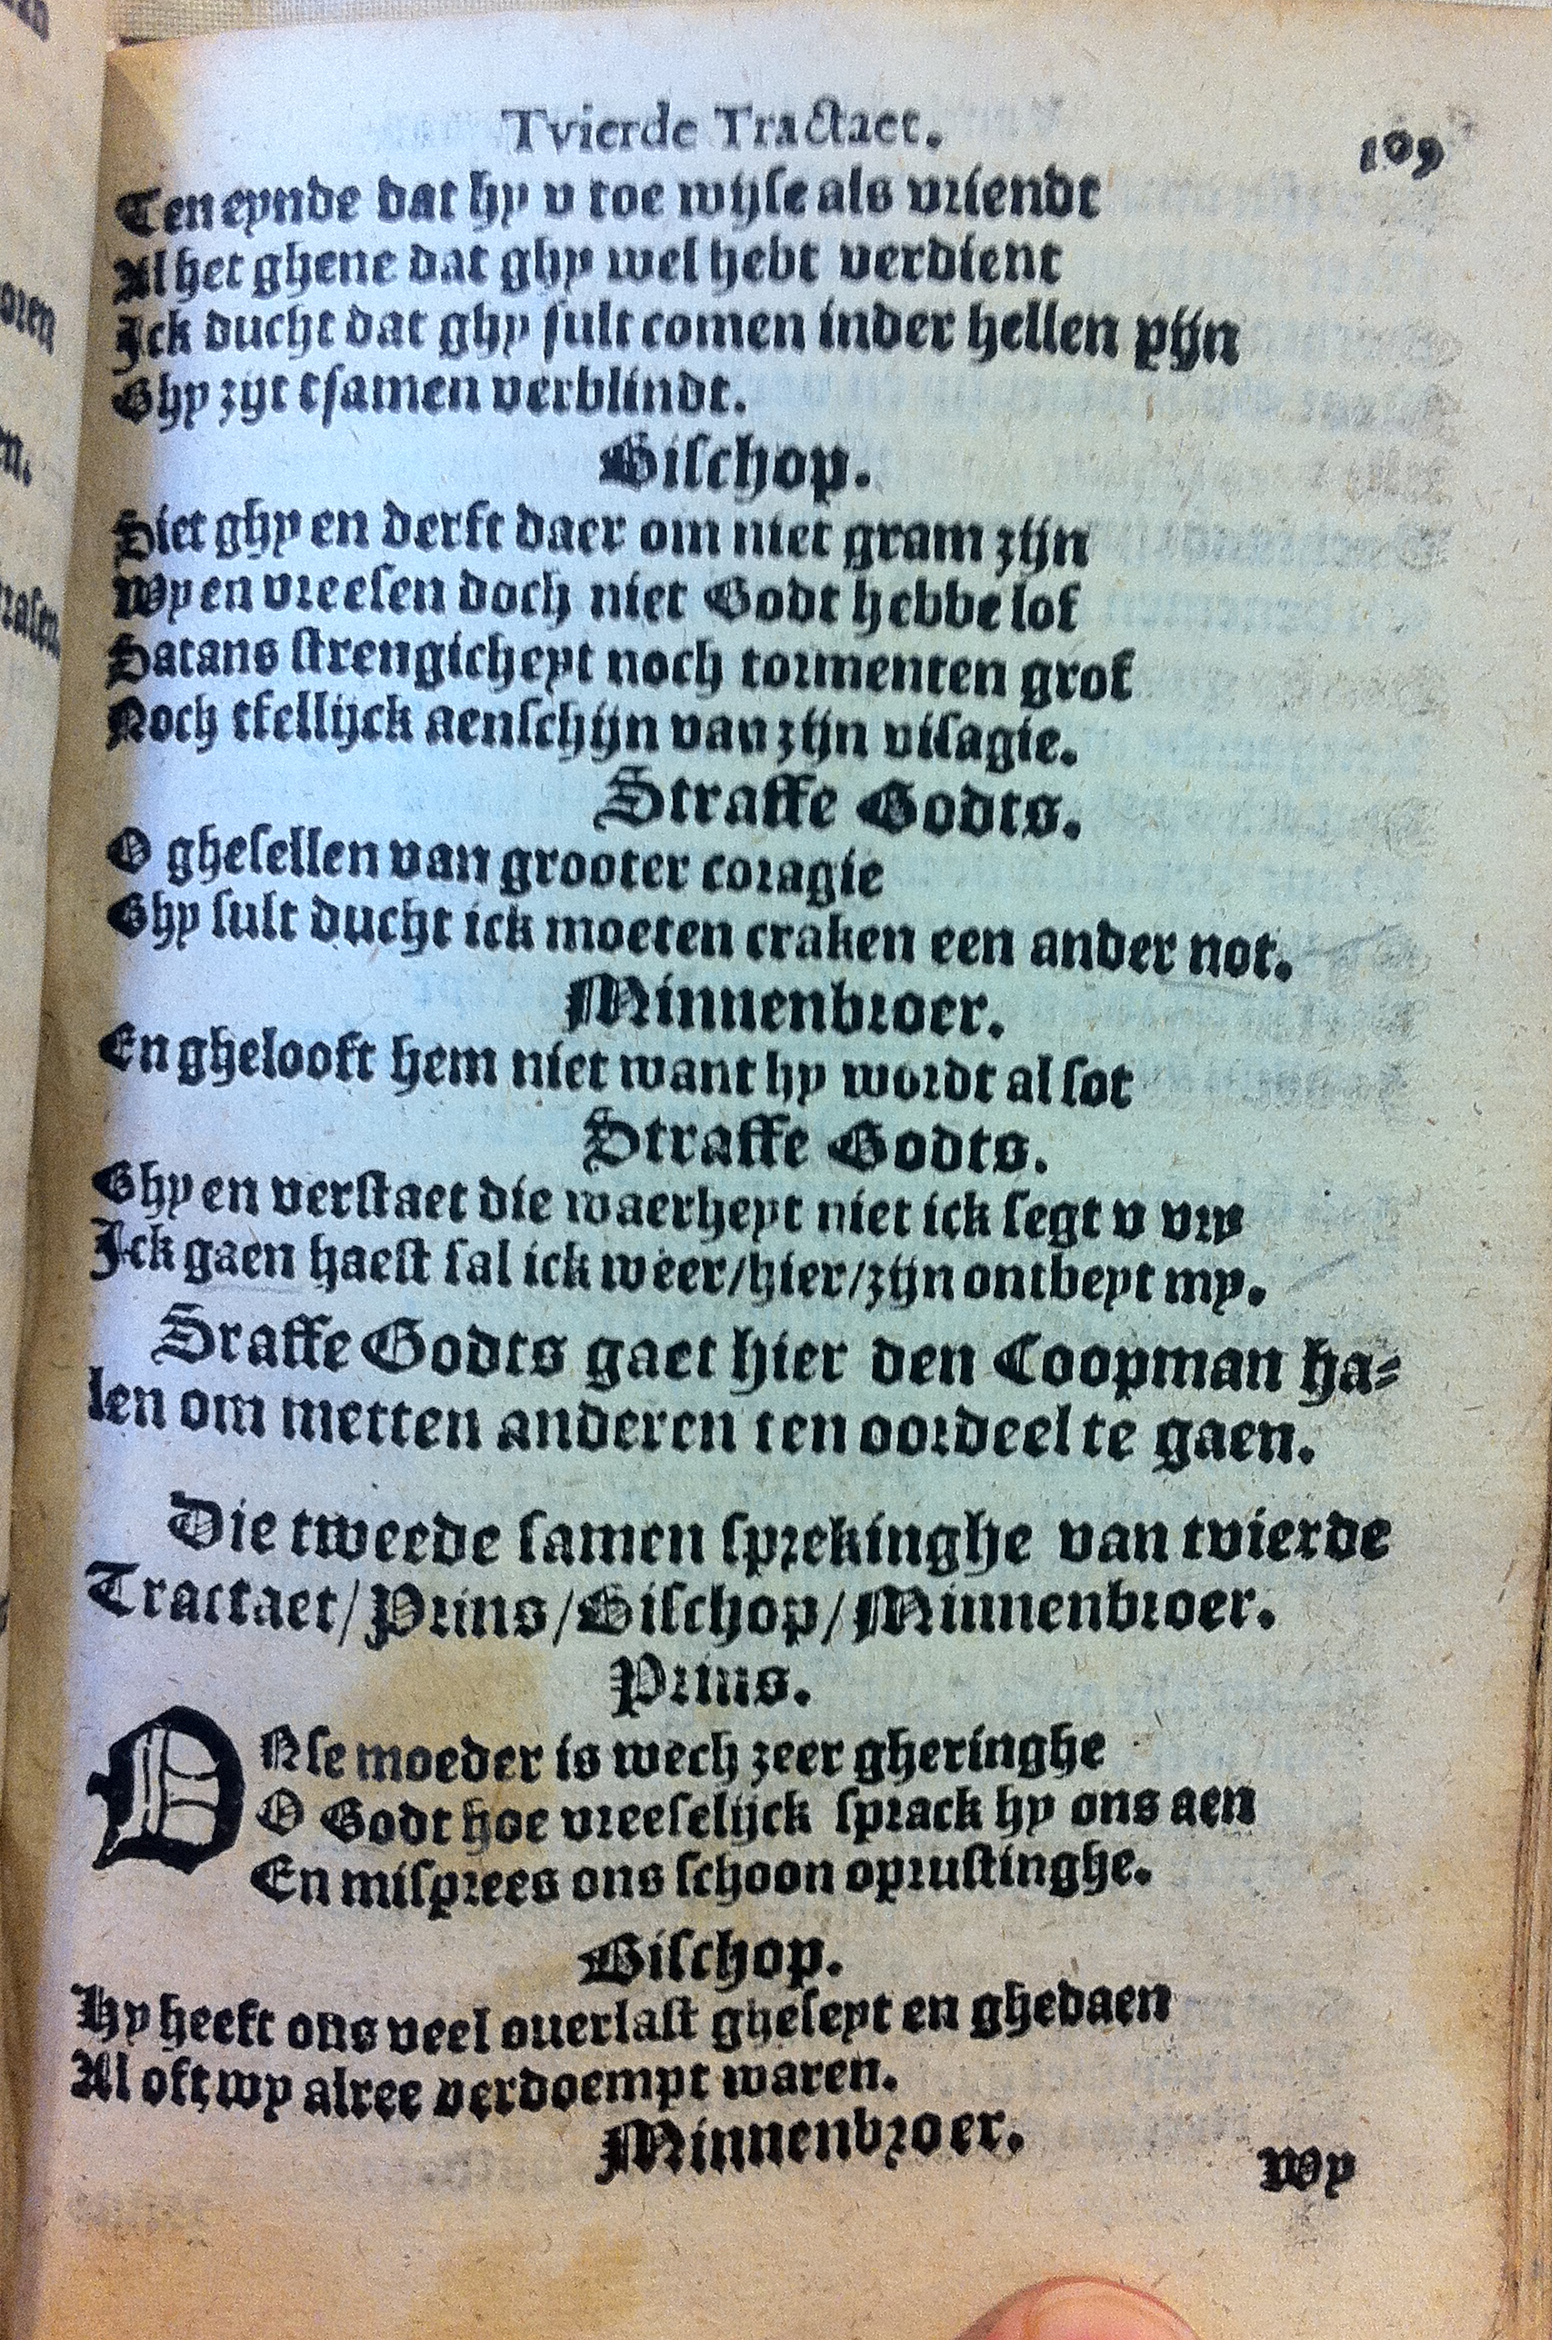 Tvierde Tractaet.
109
Ten eynde dat hy v toe wijse als vriendt
Al het ghene dat ghy wel hebt verdient
Ick ducht dat ghy sult comen inder hellen pijn
Ghy zijt tsamen verblindt.
Bisschop.
Siet ghy en derft daer om niet gram zijn
Wy en vreesen doch niet Godt hebbe lof
Satans strengicheyt noch tormenten grof
Noch tfellijck aenschijn van zijn visagie.
Straffe Godts.
O ghesellen van grooter coragie
Ghy sult ducht ick moeten craken een ander not.
Minnenbroer.
En ghelooft hem niet want hy wordt al sot
Straffe Godts.
Ghy en verstaet die waerheyt niet ick segt v vry
Ick gaen haest sal ick weer/hier/zijn ontbeyt my.
Sraffe Godts gaet hier den Coopman ha-
len om metten anderen ten oordeel te gaen.
Die tweede samen sprekinghe van tvierde
Tractaet/Prins/Bischop/Minnenbroer.
Prins.
ONse moeder is wech zeer gheringhe
O Godt hoe vreeselijck sprack hy ons aen
En misprees ons schoon oprustinghe.
Bischop.
Hy heeft ons veel ouerlast gheseyt en ghedaen
Al oft wy alree verdoempt waren.
Minnenbroer.
Wy